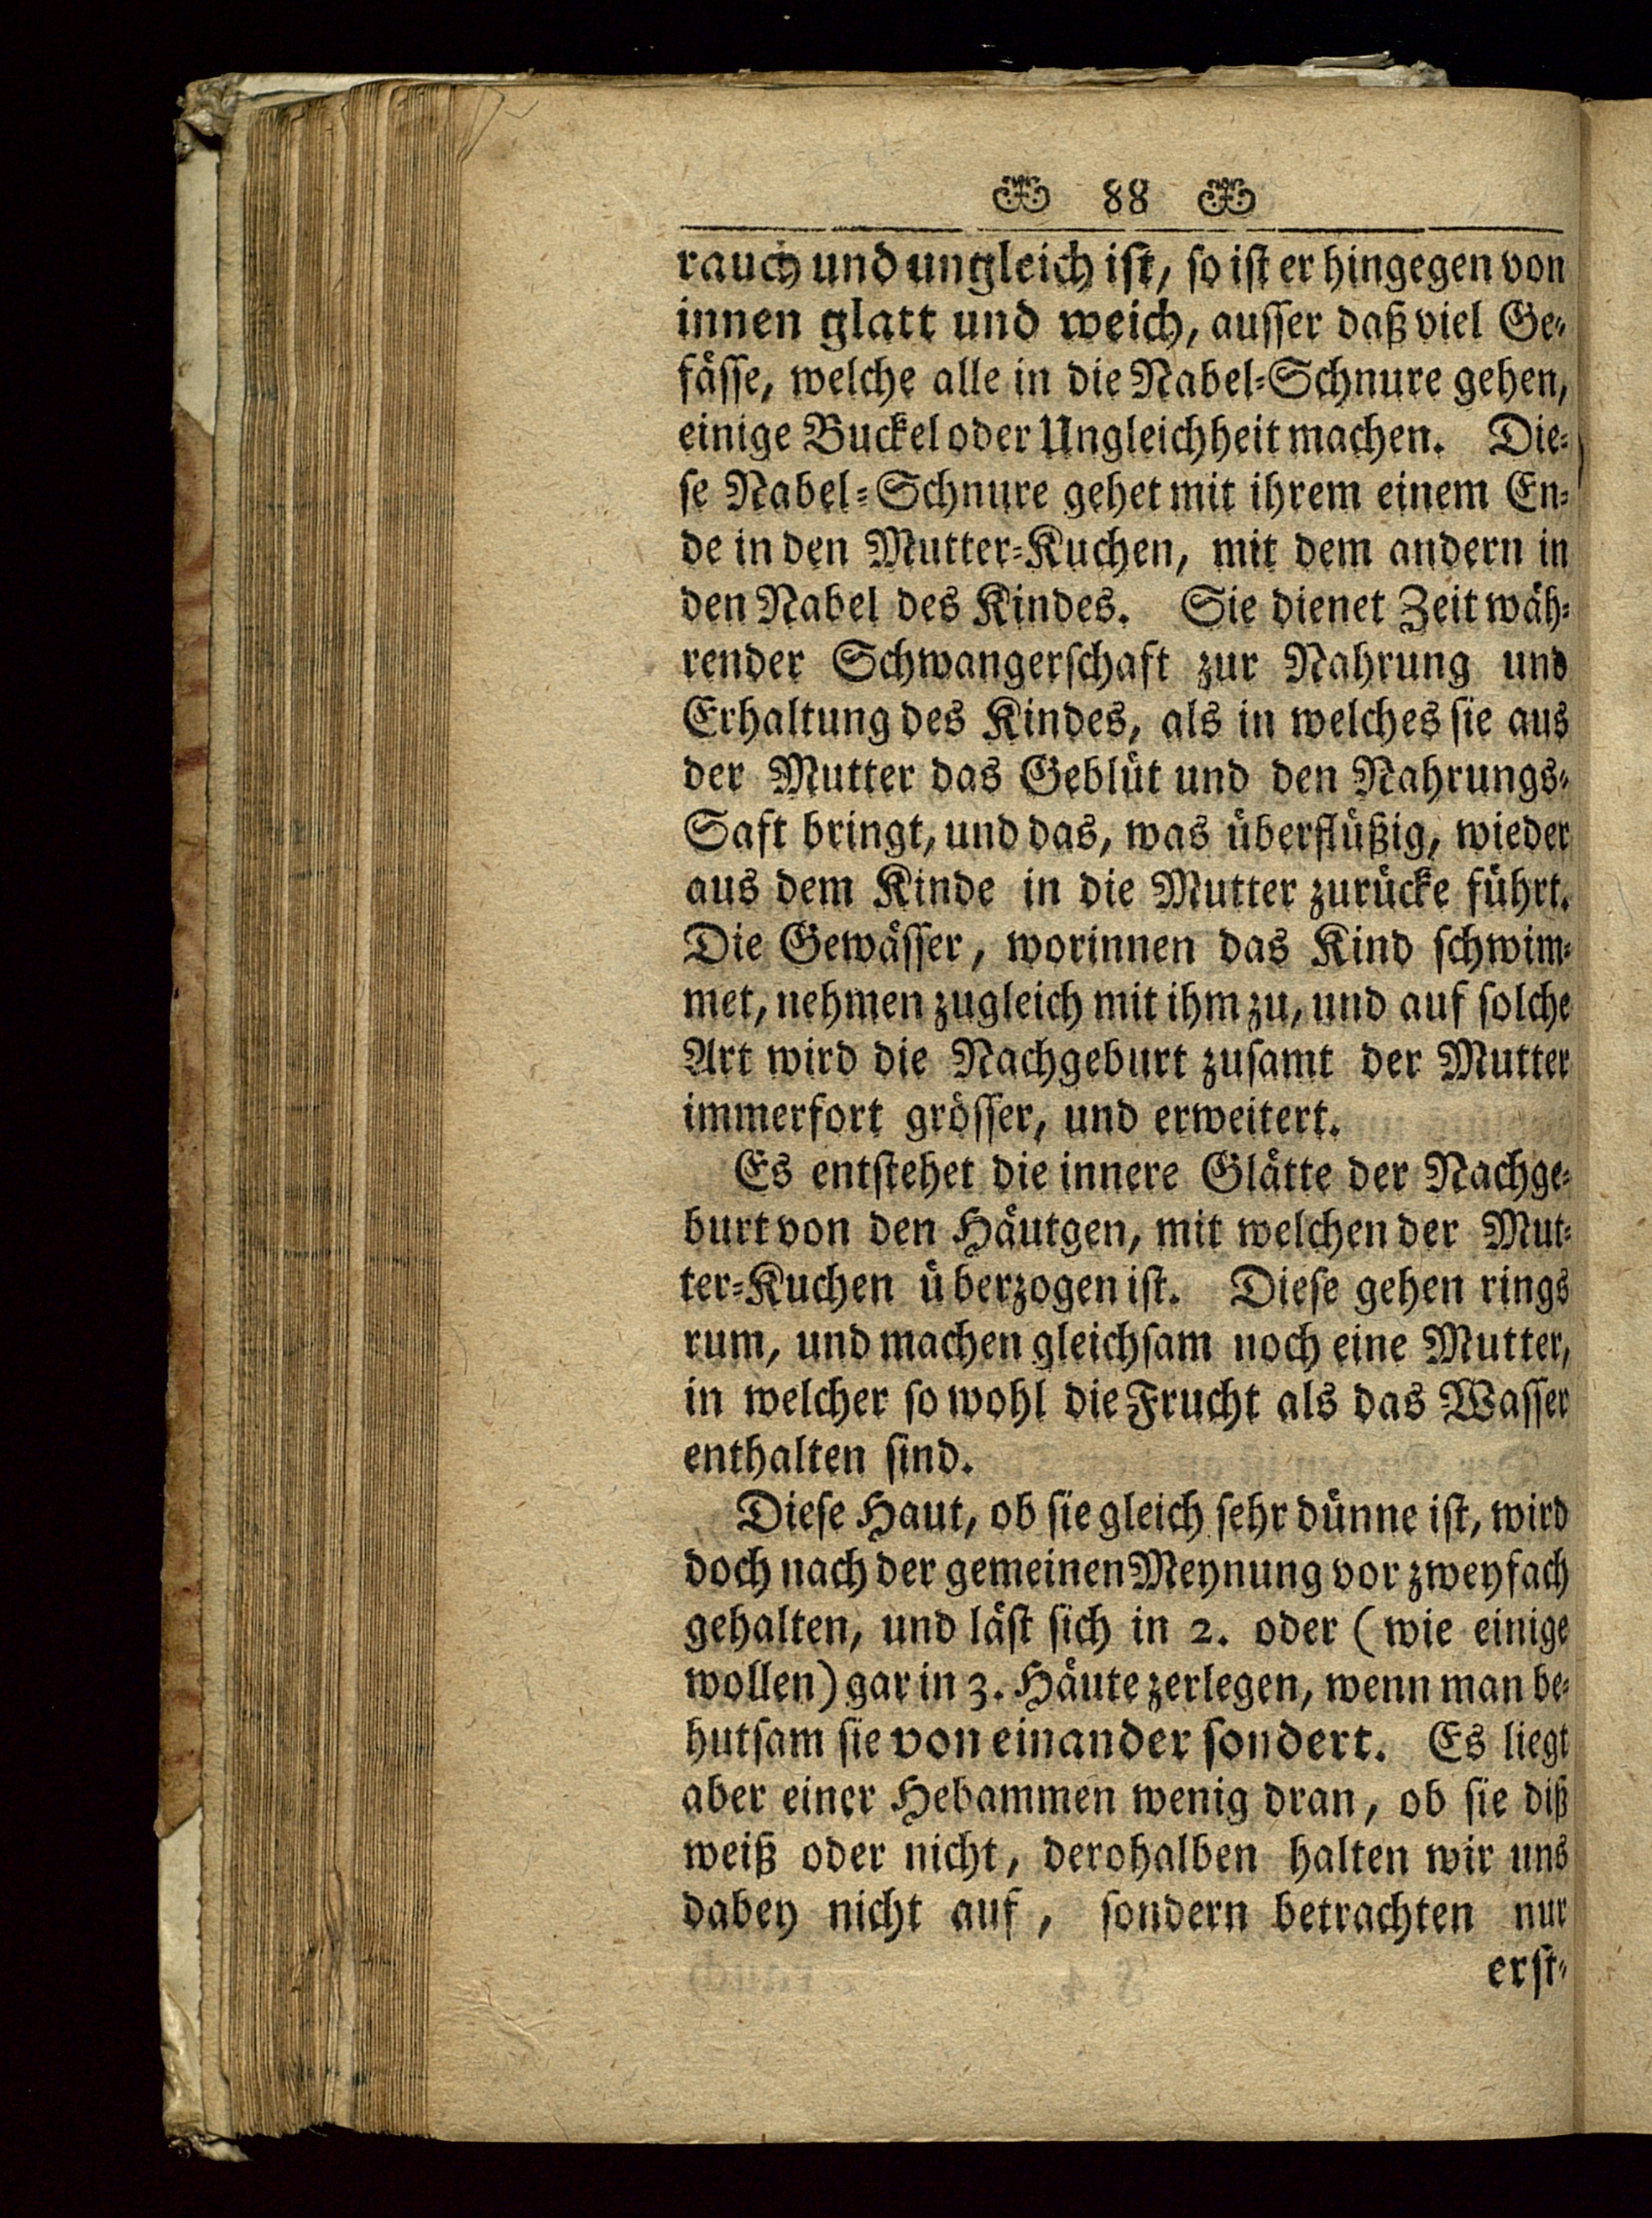 88
rauch und ungleich ist, so ist er hingegen von
innen glatt und weich, ausser daß viel Ge-
fässe, welche alle in die Nabel-Schnure gehen,
einige Buckel oder Ungleichheit machen. Die-
se Nabel-Schnure gehet mit ihrem einem En-
de in den Mutter-Kuchen, mit dem andern in
den Nabel des Kindes. Sie dienet Zeit wäh-
render Schwangerschaft zur Nahrung und
Erhaltung des Kindes, als in welches sie aus
der Mutter das Geblüt und den Nahrungs-
Saft bringt, und das, was überflüßig, wieder
aus dem Kinde in die Mutter zurücke führt.
Die Gewässer, worinnen das Kind schwim-
met, nehmen zugleich mit ihm zu, und auf solche
Art wird die Nachgeburt zusamt der Mutter
immerfort grösser, und erweitert.
Es entstehet die innere Glätte der Nachge-
burt von den Häutgen, mit welchen der Mut-
ter-Kuchen überzogen ist. Diese gehen rings
rum, und machen gleichsam noch eine Mutter,
in welcher so wohl die Frucht als das Wasser
enthalten sind.
Diese Haut, ob sie gleich sehr dünne ist, wird
doch nach der gemeinen Meynung vor zweyfach
gehalten, und läst sich in 2. oder (wie einige
wollen) gar in 3. Häute zerlegen, wenn man be-
hutsam sie von einander sondert. Es liegt
aber einer Hebammen wenig dran, ob sie diß
weiß oder nicht, derohalben halten wir uns
dabey nicht auf, sondern betrachten nur
erst-